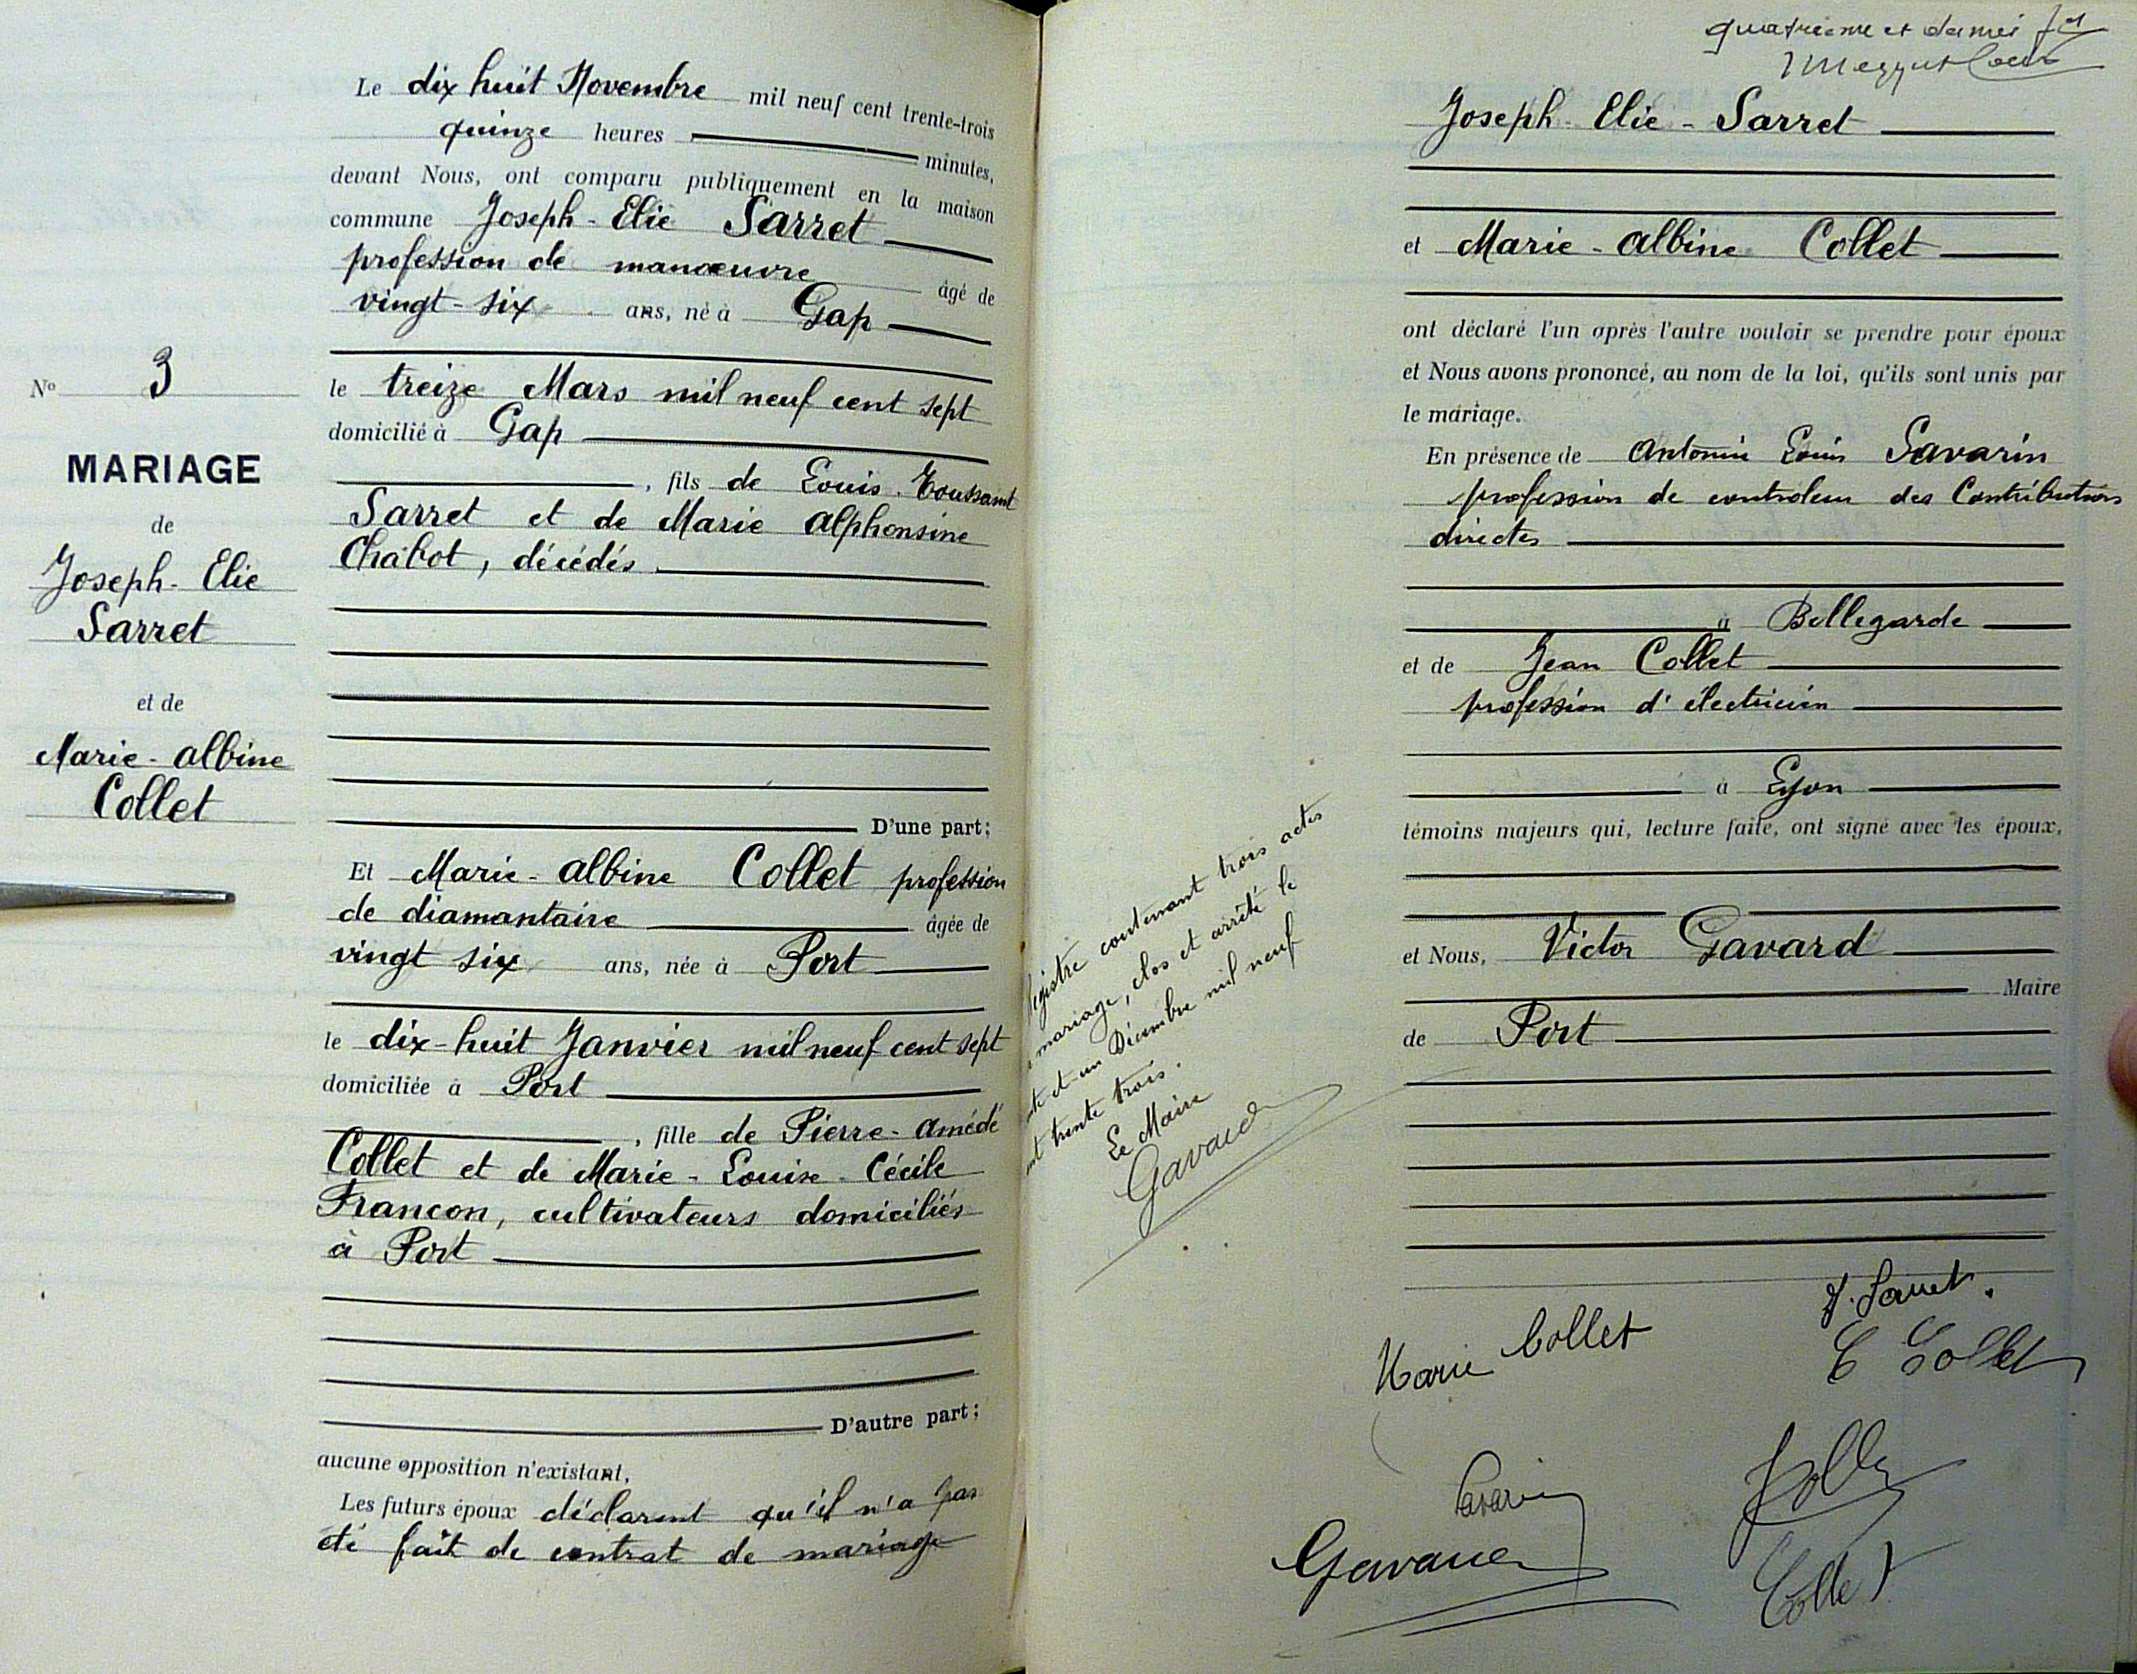 Le dix huit Novembre mil neuf cent trente-trois
quinze heures minutes,
devant Nous, ont comparu publiquement en la maison
commune Joseph-Elie Sarret
profession de manœuvre âgé de
vingt-six ans, né à Gap
le treize Mars mil neuf cent sept
domicilié à Gap
, fils de Louis Toussaint
Sarret et de Marie Alphonsine
Chabot, décédés
D'une part;
Et Marie-Albine Collet profession
de diamantaire âgée de
vingt six ans, née à Port
le dix-huit Janvier mil neuf cent sept
domiciliée à Port
, fille de Pierre-Amédé
Collet et de Marie-Louise-Cécile
Françon, cultivateurs domiciliés
à Port
D'autre part;
aucune opposition n'existant,
Les futurs époux déclarent qu'il n'a pas
été fait de contrat de mariage
No 3
MARIAGE
de
Joseph-Elie
Sarret
et de
Marie-Albine
Collet
quatrième et dernier
Joseph-Elie-Sarret
et Marie-Albine Collet
ont déclaré l'un après l'autre vouloir se prendre pour époux
et Nous avons prononcé, au nom de la loi, qu'ils sont unis par
le mariage.
En présence de Antonin Louis Savarin
profession de controleur des Contributions
directes
à Bellegarde
et de Jean Collet
profession d'électricien
à Lyon
témoins majeurs qui, lecture faite, ont signé avec les époux,
et Nous, Victor Gavard
Maire
de Port
registre contenant trois actes
mariage, clos et arrêté le
et un Décembre mil neuf
trente trois.
Le Maire
Gavard
J. Sarret.
Marie Collet
C Collet
Savarin
Gavard
Collet